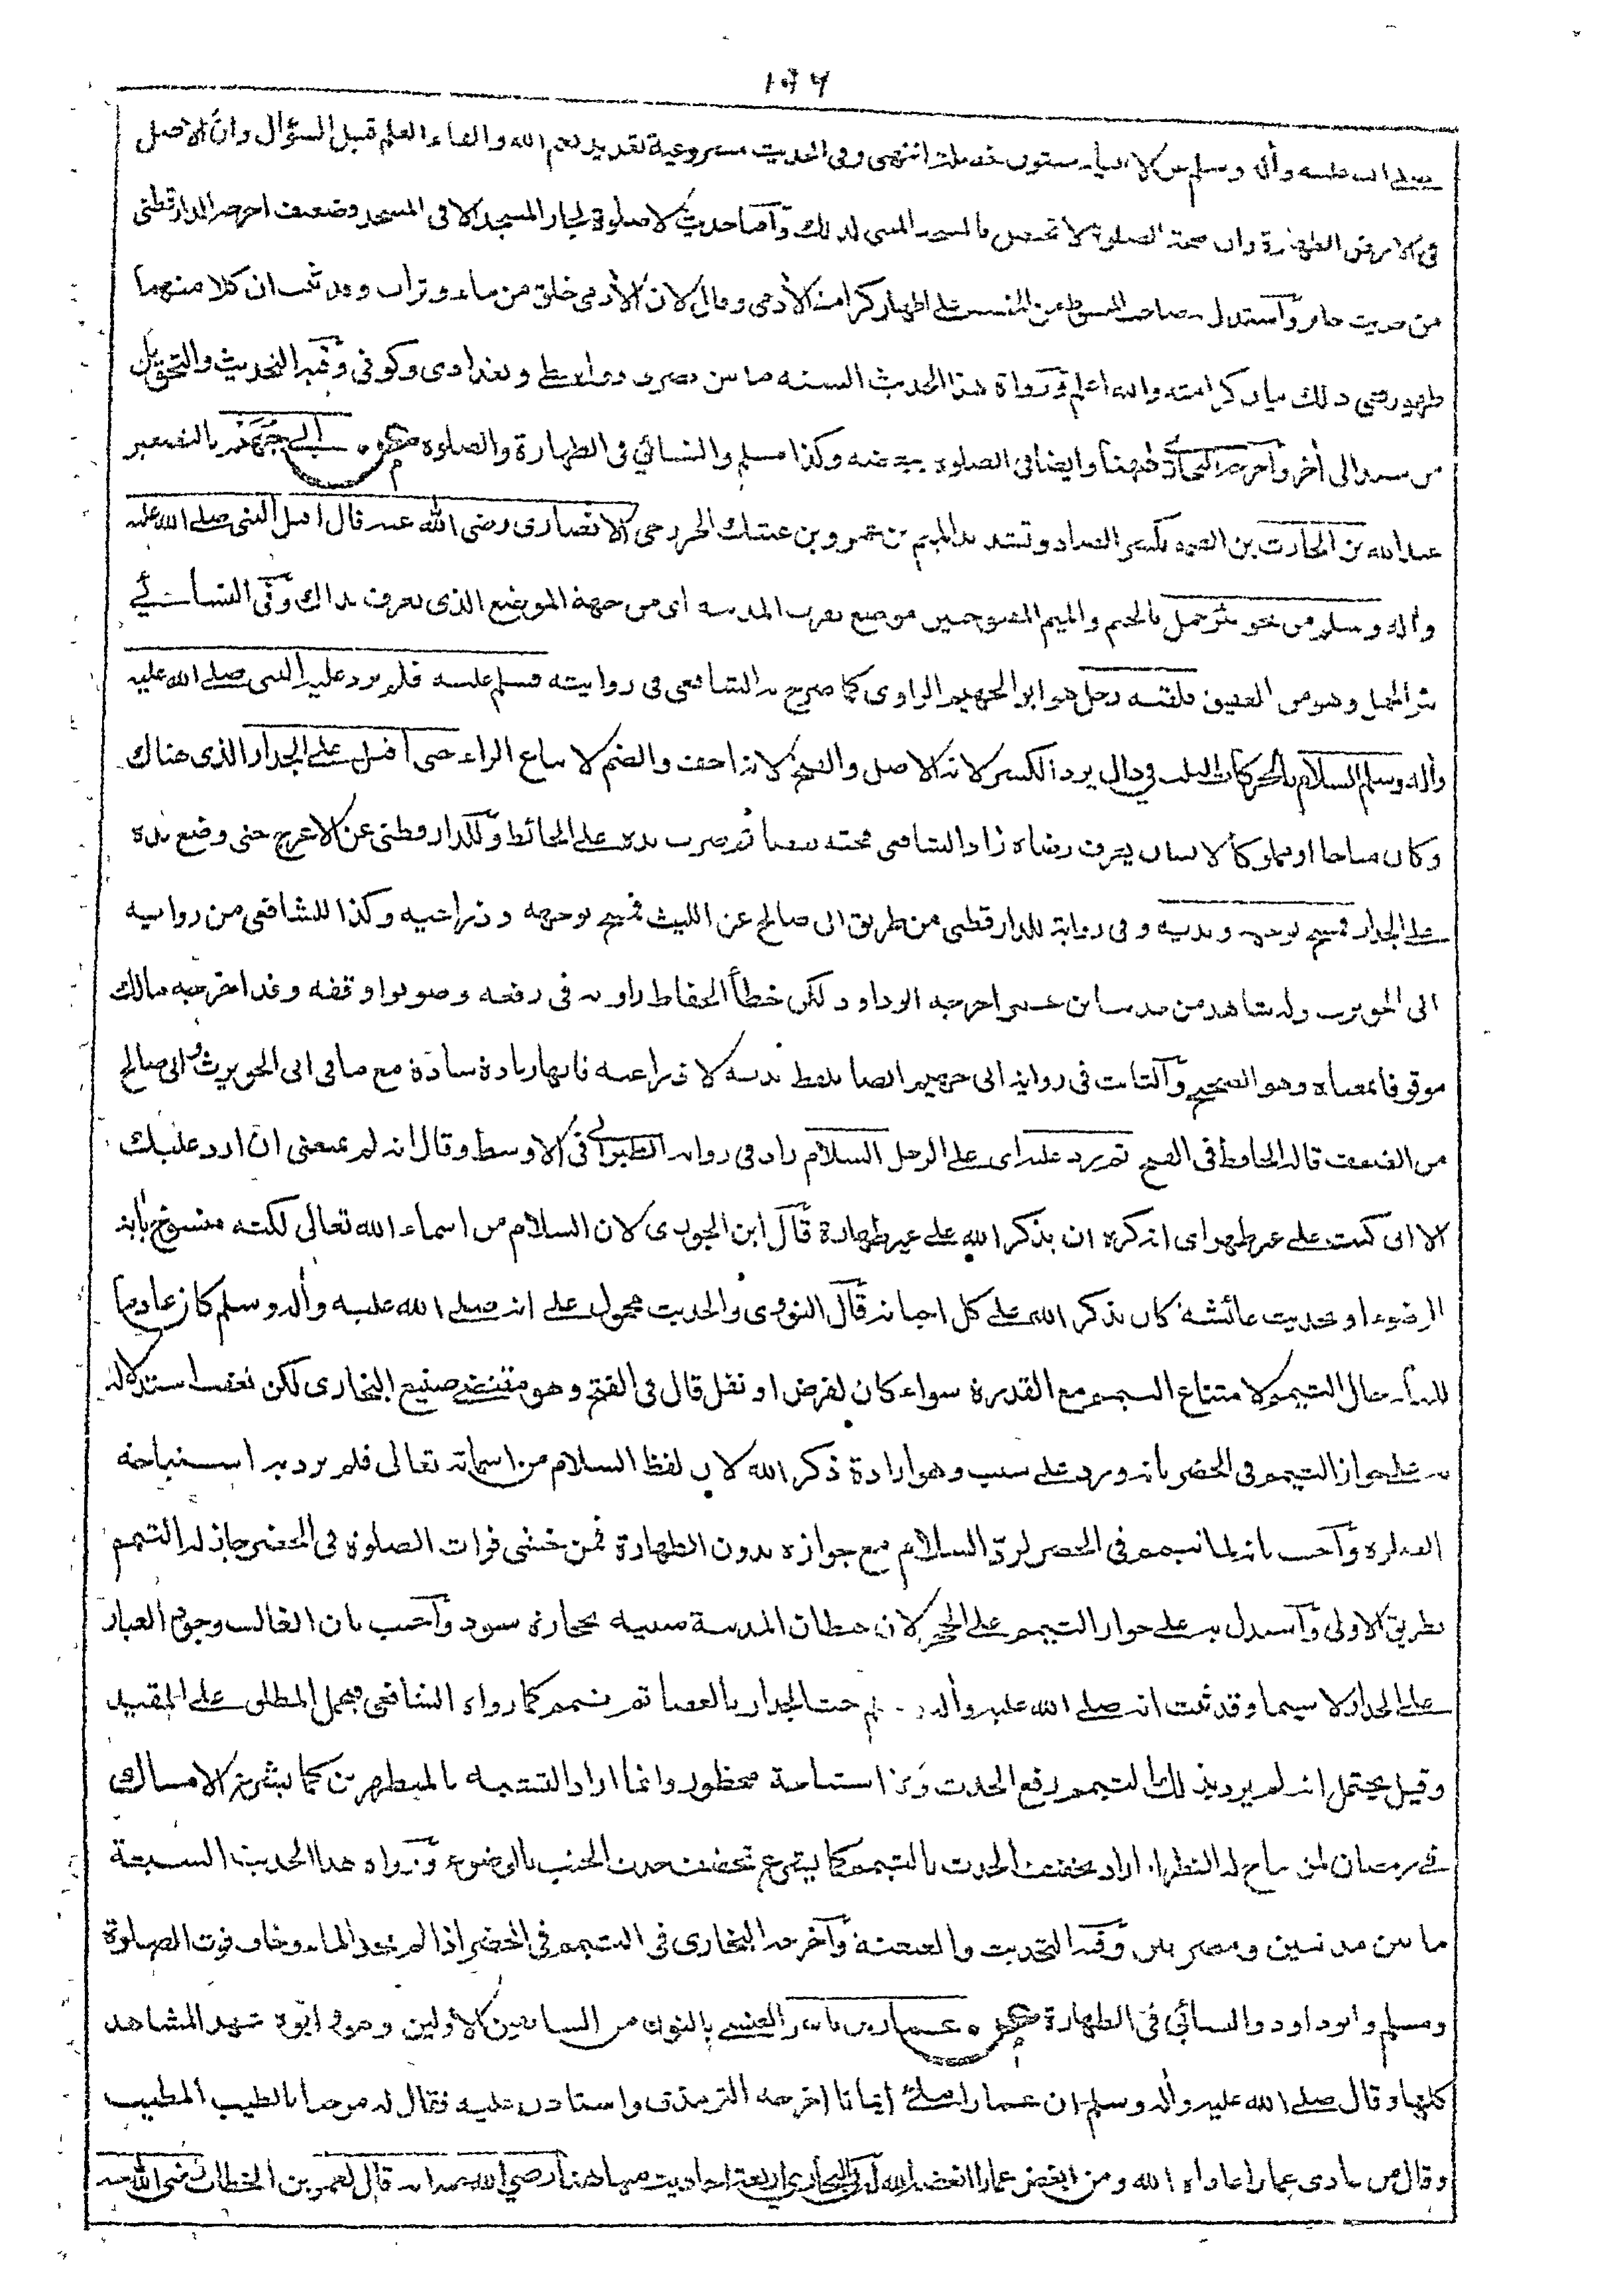 ١٥٦
صلى الله عليه وأله وسلم من الانبياء ستون خصلة انتهى وفى الحديث مشروعية تعديد نعم الله والقاء العلم قبل السؤال وان الاصل
فى الارض الطهارة وان صحة الصلوة لا تختص بالمسجد المبنى لذلك وآما حديث لا صلوة لجار المسجد الا فى المسجد وضعيف اخرجه الدارقطنى
من حديث جابر وآستدل صاحب المبسوط من على اظهار كرامة الأدمى وقال لان الأدمى خلق من ماء وتراب وقد ثبت ان كلا منهما
طهور ففى ذلك بيان كرامته والله اعلم ورواة هذا الحديث الستة ما بين بصرى وواسطى وبغدادى وكوفى وفيه التحديث والتحويل
من سند الى أخر وأخرجه البخارى ههنا وايضا فى الصلوة ببعضه وكذا مسلم والنسائي فى الطهارة والصلوة ابى جهيم بالتصغير
عبد الله بن الحارث بن الصمة بكسر الصاد وتشديد الميم بن عمرو بن عتيك الخزرجى الانصارى رضى الله عنه قال اقبل النبى صلى الله عليه
وأله وسلم من نحو بئر جمل بالجيم والميم المفتوحتين موضع بقرب المدينة اى من جهة الموضع الذى يعرف بذاك وفى النسائي
بئر الجمل وهو من العقيق فلقيه رجل هو ابو الجهيم الراوى كما صرح به الشافعى فى روايته فسلم عليه فلم يرد عليه النبى صلى الله عليه
وأله وسلم السلام بالحركات الثلث فى دال يرد الكسر لانه الاصل والفتح لانه اخف والضم لاتباع الراء حتى اقبل على الجدار الذى هناك
وكان مباحا او مملوكا لانسان يعرف رضاه زاد الشافعى فحته بعصا ثم ضرب يده على الحائط وللدارقطنى عن الاعرج حتى وضع يده
على الجدار فمسح بوجهه ويديه وفى رواية للدارقطنى من طريق ابى صالح عن الليث فمسح بوجهه وذراعيه وكذا للشافعى من رواية
ابى الحويرث وله شاهد من حديث ابن عمر اخرجه ابو داود لكن خطأ الحفاظ راويه فى رفعه وصوبوا وقفه وقد اخرجه مالك
موقوفا بمعناه وهو الصحيح وآلثابت فى رواية ابى جهيم ايضا بلفظ يديه لا ذراعيه فانها زيادة شاذة مع ما فى ابى الحويرث وابى صالح
من الضعف قاله الحافظ فى الفتح ثم يرد عليه اى على الرجل السلام زاد فى رواية الطبرانى فى الاوسط وقال انه لم يمنعنى ان ارد عليك
الا انى كنت على غير طهر اى انه كره ان يذكر الله على غير طهارة قآل ابن الجوزى لان السلام من اسماء الله تعالى لكنه منسوخ بأية
الوضوء او بحديث عائشة كان يذكر الله على كل احيانه قآل النووى والحديث محمول على انه صلى الله عليه وأله وسلم كان عادما
للماء حال التيمم لامتناع التيمم مع القدرة سواء كان لفرض او نفل قال فى الفتح وهو مقتضى صنيع البخارى لكن تعقب استدلاله
به على جواز التيمم فى الحضر بانه ورد على سبب وهو ارادة ذكر الله لان لفظ السلام من اسمائه تعالى فلم يرد به استباحة
الصلوة وآجيب بانه لما تيمم فى الحضر لرد السلام مع جوازه بدون الطهارة فمن خشى فوات الصلوة فى الحضر جاز له التيمم
بطريق الاولى وآستدل به على جواز التيمم على الحجر لان حيطان المدينة مبنية بحجارة سود وآجيب بان الغالب وجود الغبار
على الجدار لا سيما وقد ثبت انه صلى الله عليه وأله حت الجدار بالعصا ثم تيمم كما رواه الشافعى فيحمل المطلق على المقيد
وقيل يحتمل انه لم يرد بذلك التيمم رفع الحدث ولا استباحة محظور وانما اراد التشبه بالمتطهرين كما يشرع الامساك
فى رمضان لمن يباح له الفطر او اراد تخفيف الحدث بالتيمم كما يشرع تخفيف حدث الجنب بالوضوء ورواه هذا الحديث السبعة
ما بين مدنيين ومصريين وفيه التحديث والعنعنة وآخرجه البخارى فى التيمم فى الحضر اذا لم يجد الماء وخاف فوت الصلوة
ومسلم وابو داود والنسائي فى الطهارة عمار بن ياسر العنسى بالنون من السابقين الاولين وهو وابوه شهد المشاهد
كلها وقال صلى الله عليه وأله وسلم ان عمارا ملئ ايمانا اخرجه الترمذى واستاذن عليه فقال له مرحبا بالطيب المطيب
وقال من عادى عمارا عاداه الله ومن ابغض عمارا ابغضه الله له فى البخارى اربعة احاديث منها هنا رضى الله عنه انه قال لعمر بن الخطاب رضى الله عنه